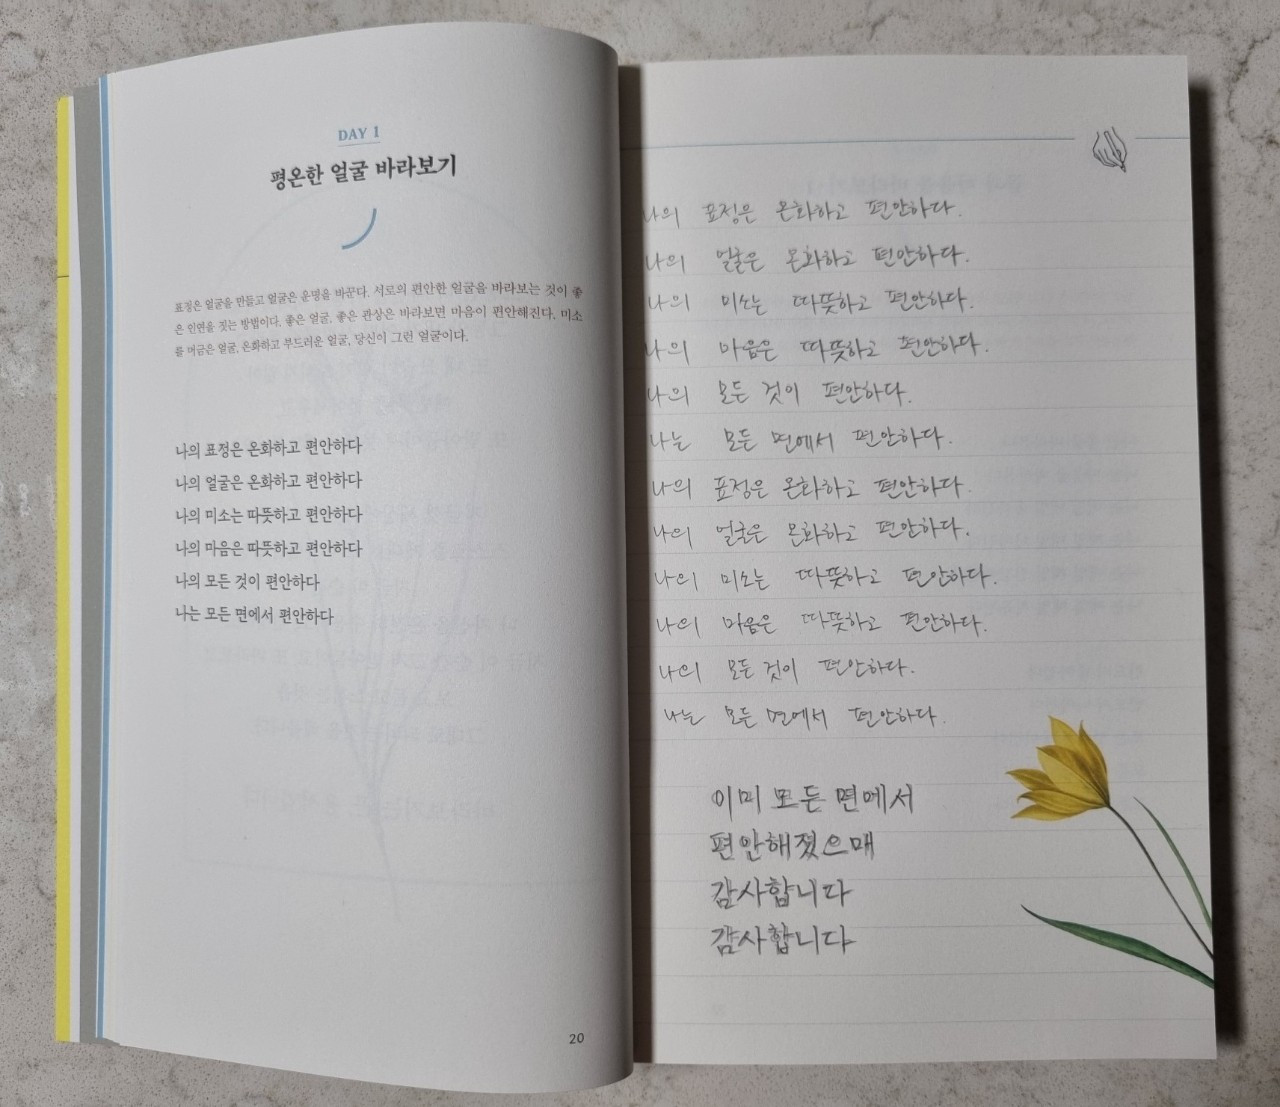 DAY 1
평온한 얼굴 바라보기
표정은 얼굴을 만들고 얼굴은 운명을 바꾼다. 서로의 편안한 얼굴을 바라보는 것이 좋
은 인연을 짓는 방법이다. 좋은 얼굴, 좋은 관상은 바라보면 마음이 편안해진다. 미소
를 머금은 얼굴, 온화하고 부드러운 얼굴, 당신이 그런 얼굴이다.
나의 표정은 온화하고 편안하다
나의 얼굴은 온화하고 편안하다
나의 미소는 따뜻하고 편안하다
나의 마음은 따뜻하고 편안하다
나의 모든 것이 편안하다
나는 모든 면에서 편안하다
20
나의 표정은 온화하고 편안하다.
나의 얼굴은 온화하고 편안하다.
나의 미소는 따뜻하고 편안하다.
나의 마음은 따뜻하고 편안하다.
나의 모든 것이 편안하다.
나는 모든 면에서 편안하다.
나의 표정은 온화하고 편안하다.
나의 얼굴은 온화하고 편안하다.
나의 미소는 따뜻하고 편안하다.
나의 마음은 따뜻하고 편안하다.
나의 모든 것이 편안하다.
나는 모든 면에서 편안하다.
이미 모든 면에서
편안해졌으매
감사합니다
감사합니다